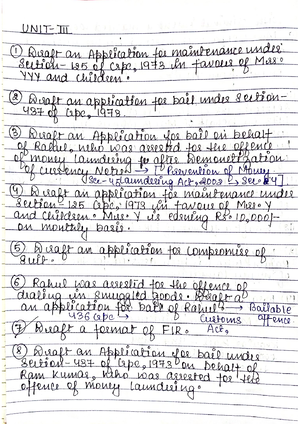 UNIT-III
① Draft an Application for maintenance under
Section-125 of Crpc, 1973 in favour of Mrs.
YYY and children.
② Draft an application for bail under Section-
437 of Crpc, 1973.
③ Draft an Application for bail on behalf
of Rahul, who was arrested for the offence
of money laundering after Demonetization
of currency Notes → [Prevention of Money
Sec-45 Laundering Act, 2002 ↳ Sec-84]
④ Draft an application for maintenance under
Section-125 Crpc, 1973 in favour of Mrs. Y
and Children. Mrs. Y is earning Rs. 10,000/-
on monthly basis.
⑤ Draft an application for Compromise of
Suit.
⑥ Rahul was arrested for the offence of
dealing in smuggled goods. Draft a
an application for bail of Rahul → Bailable
436 Crpc → Customs offence
⑦ Draft a format of FIR. Act,
⑧ Draft an Application for bail under
Section-437 of Crpc, 1973 on behalf of
Ram Kumar, who was arrested for the
offence of money laundering.